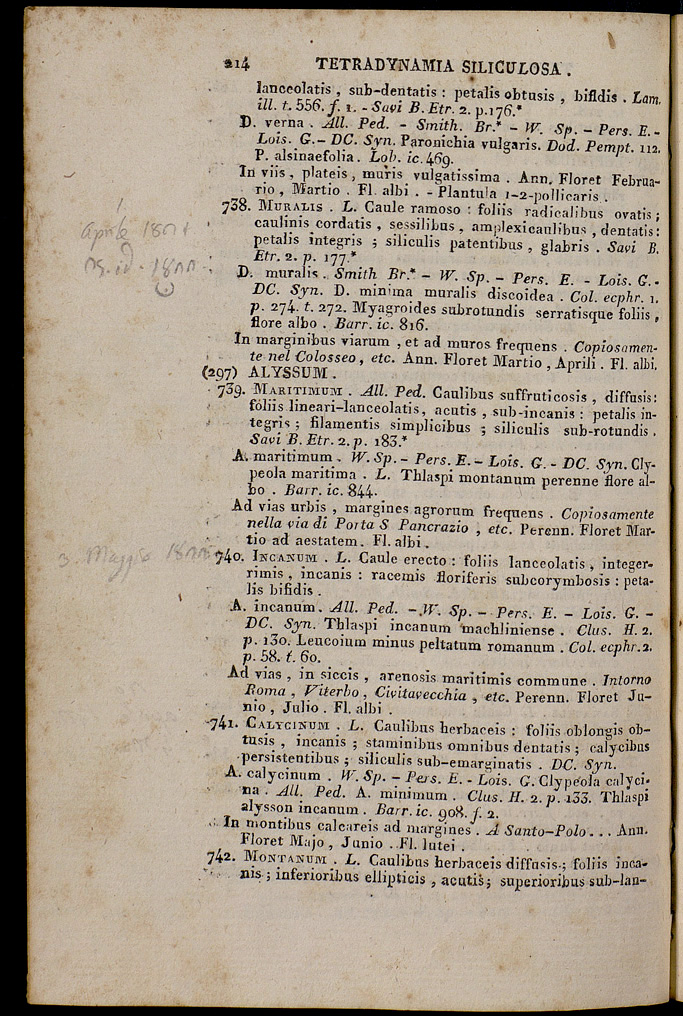 214 TETRADYNAMIA SILICULOSA .
lanceolatis , sub-dentatis : petalis obtusis , bifidis . Lam.
ill. t. 556. f. 1. - Savi B. Etr. 2. p.176.*
D. verna . All. Ped. - Smith. Br.* - W. Sp. - Pers. E. -
Lois. G. - DC. Syn. Paronichia vulgaris. Dod. Pempt. 112.
P. alsinaefolia . Lob. ic. 469.
In viis , plateis , muris vulgatissima . Ann. Floret Februa-
rio , Martio . Fl. albi . - Plantula 1-2-pollicaris .
738. MURALIS . L. Caule ramoso : foliis radicalibus ovatis ;
caulinis cordatis , sessilibus , amplexicaulibus , dentatis :
petalis integris ; siliculis patentibus , glabris . Savi B.
Etr. 2. p. 177.*
Aprile 18
D. muralis . Smith Br.* - W. Sp. - Pers. E. - Lois. G. -
DC. Syn. D. minima muralis discoidea . Col. ecphr. 1.
p. 274. t. 272. Myagroides subrotundis serratisque foliis ,
flore albo . Barr. ic. 816.
In marginibus viarum , et ad muros frequens . Copiosamen-
te nel Colosseo , etc. Ann. Floret Martio , Aprili . Fl. albi.
(297) ALYSSUM .
739. MARITIMUM . All. Ped. Caulibus suffruticosis , diffusis :
foliis lineari-lanceolatis , acutis , sub-incanis : petalis in-
tegris ; filamentis simplicibus ; siliculis sub-rotundis .
Savi B. Etr. 2. p. 183.*
A. maritimum . W. Sp. - Pers. E. - Lois. G. - DC. Syn. Cly-
peola maritima . L. Thlaspi montanum perenne flore al-
bo . Barr. ic. 844.
Ad vias urbis , margines agrorum frequens . Copiosamente
nella via di Porta S Pancrazio , etc. Perenn. Floret Mar-
tio ad aestatem. Fl. albi .
3. Maggio 18
740. INCANUM . L. Caule erecto : foliis lanceolatis , integer-
rimis , incanis : racemis floriferis subcorymbosis : peta-
lis bifidis .
A. incanum. All. Ped. - W. Sp. - Pers. E. - Lois. G. -
DC. Syn. Thlaspi incanum machliniense . Clus. H. 2.
p. 130. Leucoium minus peltatum romanum . Col. ecphr.2.
p. 58. t. 60.
Ad vias , in siccis , arenosis maritimis commune . Intorno
Roma , Viterbo , Civitavecchia , etc. Perenn. Floret Ju-
nio , Julio . Fl. albi .
741. CALYCINUM . L. Caulibus herbaceis : foliis oblongis ob-
tusis , incanis ; staminibus omnibus dentatis ; calycibus
persistentibus ; siliculis sub-emarginatis . DC. Syn.
A. calycinum . W. Sp. - Pers. E. - Lois. G. Clypeola calyci-
na . All. Ped. A. minimum . Clus. H. 2. p. 133. Thlaspi
alysson incanum . Barr. ic. 908. f. 2.
In montibus calcareis ad margines . A Santo-Polo . . . Ann.
Floret Majo , Junio . Fl. lutei .
742. MONTANUM . L. Caulibus herbaceis diffusis ; foliis inca-
nis ; inferioribus ellipticis , acutis ; superioribus sub-lan-